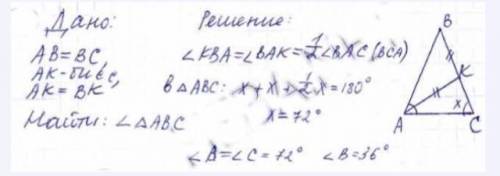 Дано:
AB=BC
AK-бис,
AK=BK
Найти: ∠△ABC
Решение:
∠KBA=∠BAK=1/2∠BAC(BCA)
в △ABC: x+x+1/2x=180°
x=72°
∠A=∠C=72° ∠B=36°
B
K
A
x
C